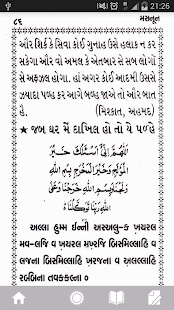 21:26
૮૬ મસનૂન
ઔર શિર્ક કે સિવા કોઈ ગુનાહ ઉસે હલાક ન કર
સકેગા ઔર વો અમલ કે એતબાર સે સબ લોગોં
સે અફઝલ હોગા. હાં અગર કોઈ આદમી ઉસસે
ઝયાદા પળ્હ કર આગે બળ્હ જાએ, તો ઔર બાત
હે. (મિરકાત, અહમદ)
★ જબ ઘર મેં દાખિલ હોં તો યે પળ્હે
اَللّٰهُمَّ اِنِّىْ اَسْئَلُكَ خَيْرَ
الْمَوْلِجِ وَخَيْرَ الْمَخْرَجِ بِسْمِ اللّٰهِ
وَلَجْنَا وَبِسْمِ اللّٰهِ خَرَجْنَا وَعَلَى
اللّٰهِ رَبِّنَا تَوَكَّلْنَا
અલ્લા હુમ્મ ઈન્ની અસઅલુ-ક ખયરલ
મવ-લજિ વ ખયરલ મખ્રજિ બિસમિલ્લાહિ વ
લજના બિસમિલ્લાહિ ખરજના વ અલલાહિ
રબ્બિના તવક્કલ્ના ०